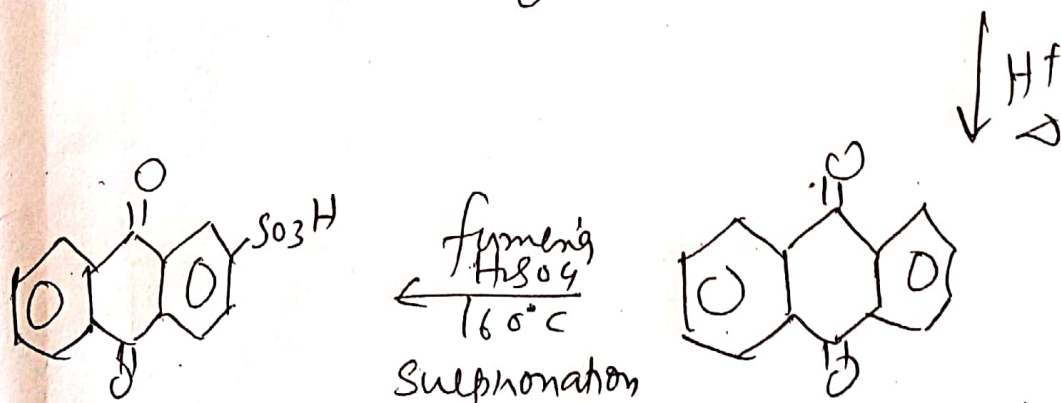 H+
Δ
O
O
SO3H
fumeng
H2SO4
160°C
Sulphonation
O
O
O
O
O
O